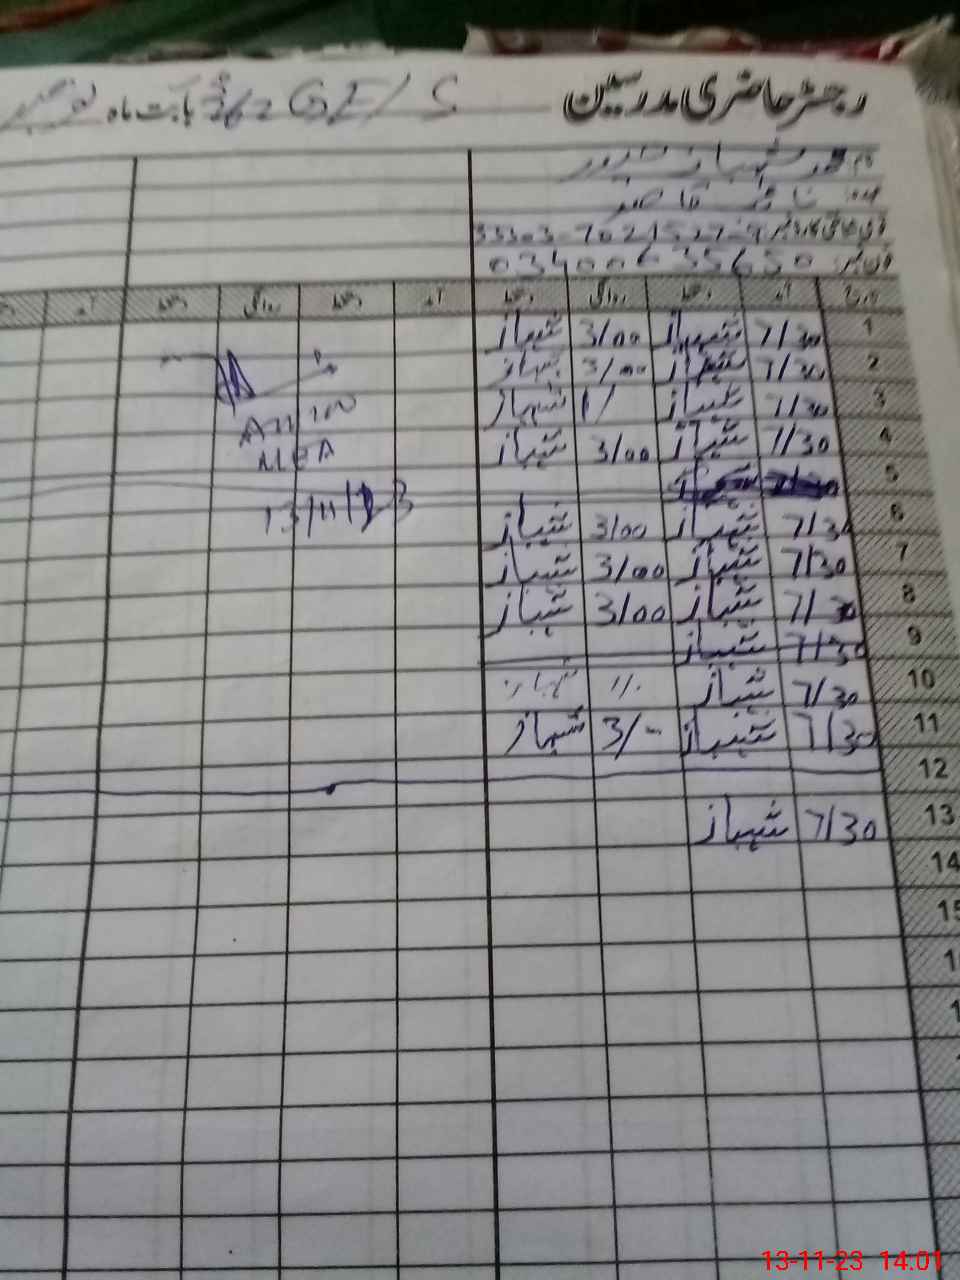 رجسٹر حاضری مدرسین GE/S 262 بابت ماہ نومبر
نام
عہدہ نائب قاصد
قومی شناختی کارڈ نمبر 33303-7021527-9
فون نمبر 03400635650
تاریخ آمد دستخط روانگی دستخط آمد دستخط روانگی دستخط آمد
1 7/30 شہباز 3/00 شہباز
2 7/30 شہباز 3/00 شہباز
3 7/30 شہباز 1/ شہباز
4 7/30 شہباز 3/00 شہباز
5
6 7/30 شہباز 3/00 شہباز
7 7/30 شہباز 3/00 شہباز
8 7/30 شہباز 3/00 شہباز
9 7/30 شہباز
10 7/30 شہباز 11/. شہباز
11 7/30 شہباز 3/- شہباز
12
13 7/30 شہباز
14
15
MEA
13/11/23
13-11-23 14.01